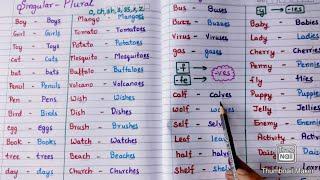 Singular - Plural
o, ch, sh, s, ss, x, z
Boy - Boys
Bird - Birds
Toy - Toys
cat - Cats
bat - bats
Pencil - Pencils
Pen - Pens
Bird - Birds
egg - eggs
Book - Books
tree - trees
day - days
Mango - Mangoes
Tomato - Tomatoes
Potato - Potatoes
Mosquito - Mosquitoes
Buffalo - Buffaloes
Volcano - Volcanoes
Wish - Wishes
Dish - Dishes
Brush - Brushes
Watch - Watches
Beach - Beaches
church - churches
Bus - Buses
Buzz - Buzzes
Virus - Viruses
gas - gases
-f
-fe
-ves
calf - Calves
wolf - Wolves
Self - Selv
Leaf - lea
half - halv
Shelf - shel
y
-ies
Baby - Babies
Lady - Ladies
Cherry - Cherries
Penny - Pennies
fly - flies
Puppy - Puppies
Jelly - Jellies
Enemy - Enemies
Activity - Activi
Dairy - Dairi
Thumbnail Maker